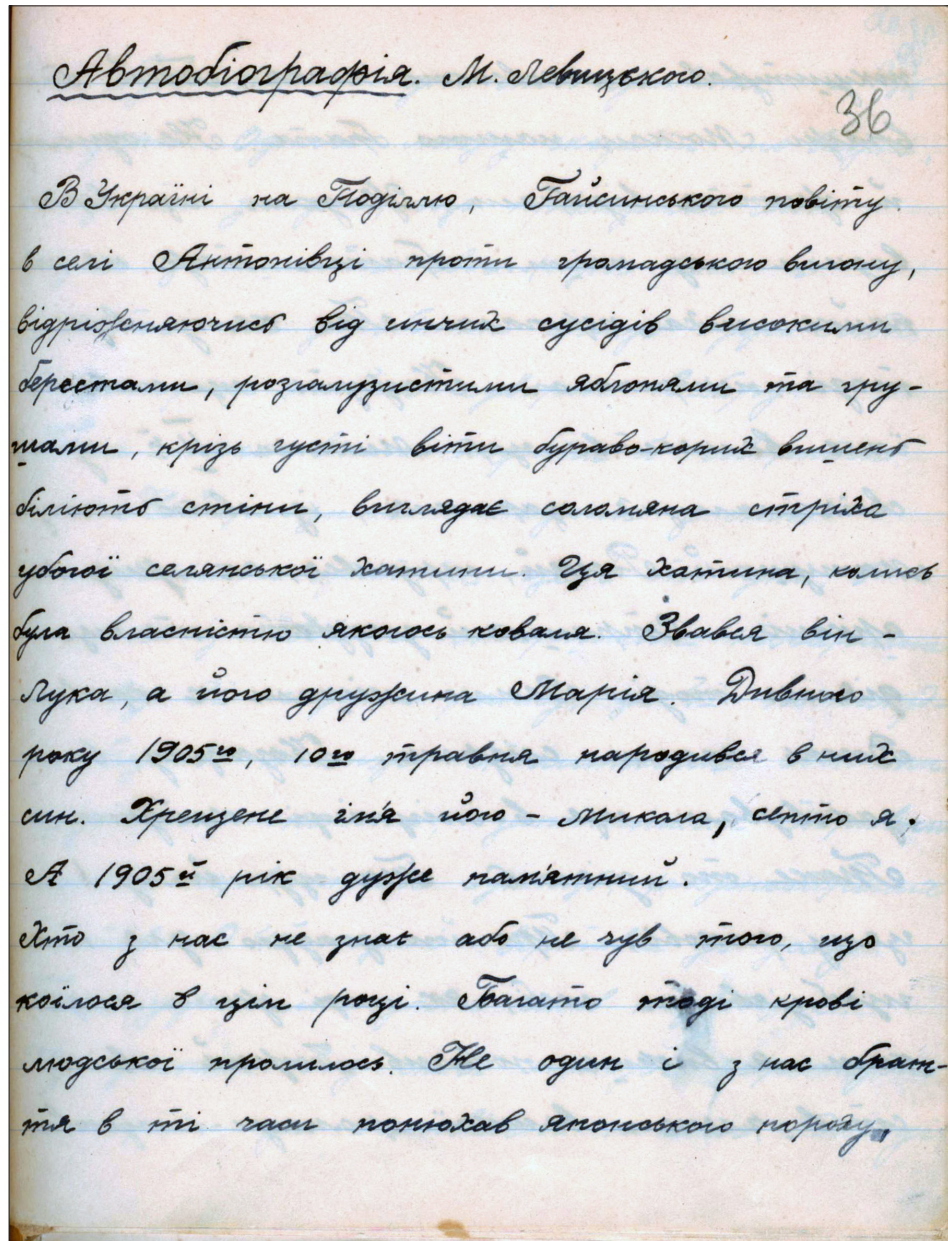 Автобіографія. М. Левицького.
36
В Україні на Поділлю, Гайсинського повіту
в селі Антонівці проти громадського вигону,
відріжняючись від инчих сусідів високими
берестами, розгалузистими яблонями та гру-
шами, крізь густі віти бураво-корих вишень
біліють стіни, виглядає соломяна стріха
убогої селянської хатини. Ця хатина, колись
була власністю якогось коваля. Звався він -
Лука, а його дружина Марія. Дивного
року 1905го, 10го травня народився в них
син. Хрещене імʼя його - Микола, септо я.
А 1905й рік дуже памʼятний.
Хто з нас не знає або не чув того, що
коїлося в цім році. Багато тоді крові
людської пролилось. Не один і з нас брат-
тя в ті часи понюхав японського пороху,